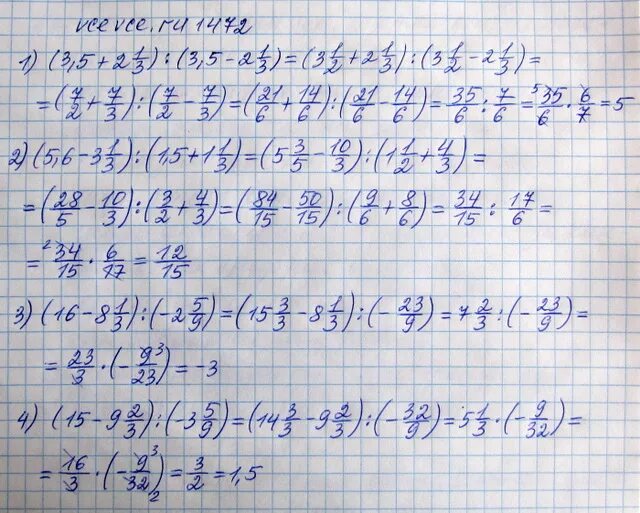 vcevce.ru 1472
1) (3,5+2 1/3):(3,5-2 1/3)=(3 1/2+2 1/3):(3 1/2-2 1/3)=
=(7/2+7/3):(7/2-7/3)=(21/6+14/6):(21/6-14/6)=35/6:7/6=⁵35/6·6/7=5
2) (5,6-3 1/3):(1,5+1 1/3)=(5 3/5-10/3):(1 1/2+4/3)=
=(28/5-10/3):(3/2+4/3)=(84/15-50/15):(9/6+8/6)=34/15:17/6=
=²34/15·6/17=12/15
3) (16-8 1/3):(-2 5/9)=(15 3/3-8 1/3):(-23/9)=7 2/3:(-23/9)=
=23/3·(-9³/23)=-3
4) (15-9 2/3):(-3 5/9)=(14 3/3-9 2/3):(-32/9)=5 1/3·(-9/32)=
=16/3·(-9³/32₂)=3/2=1,5